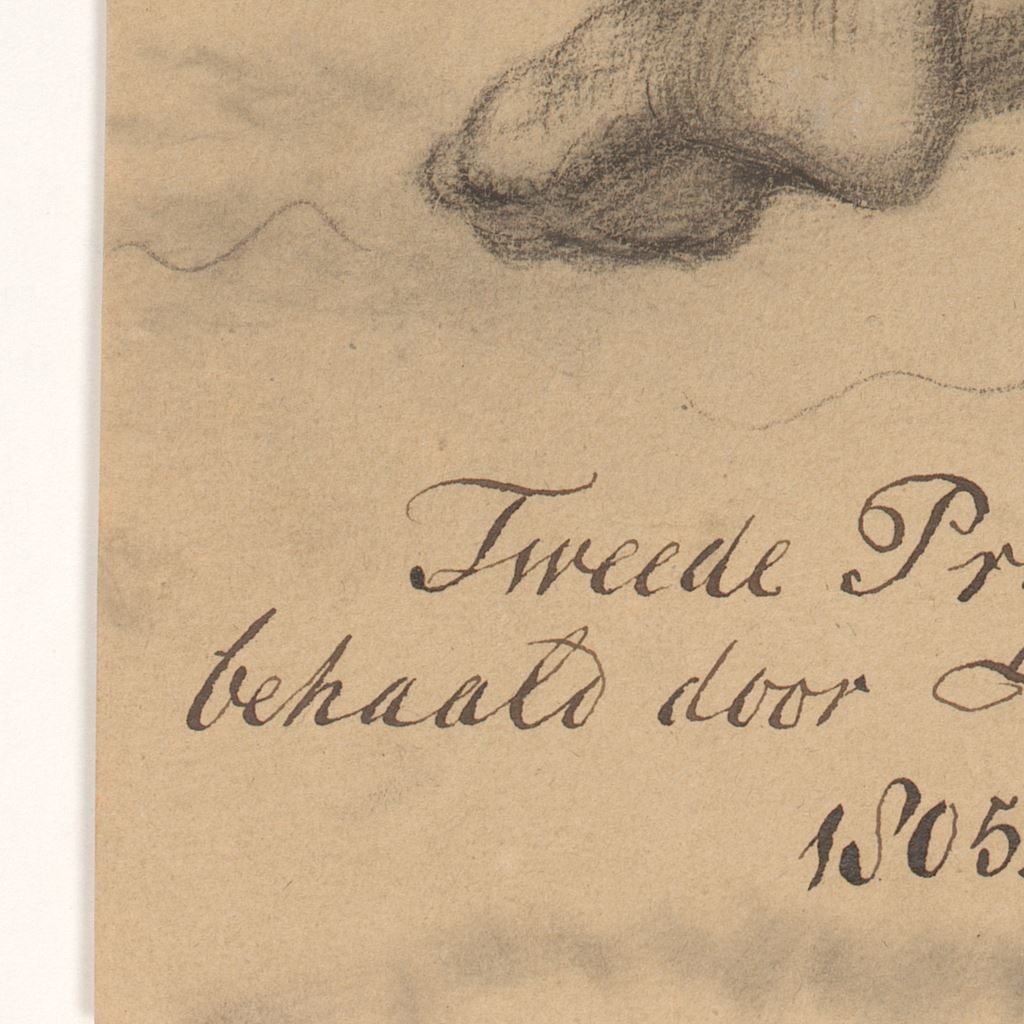 Tweede Pr
behaald door
1805.